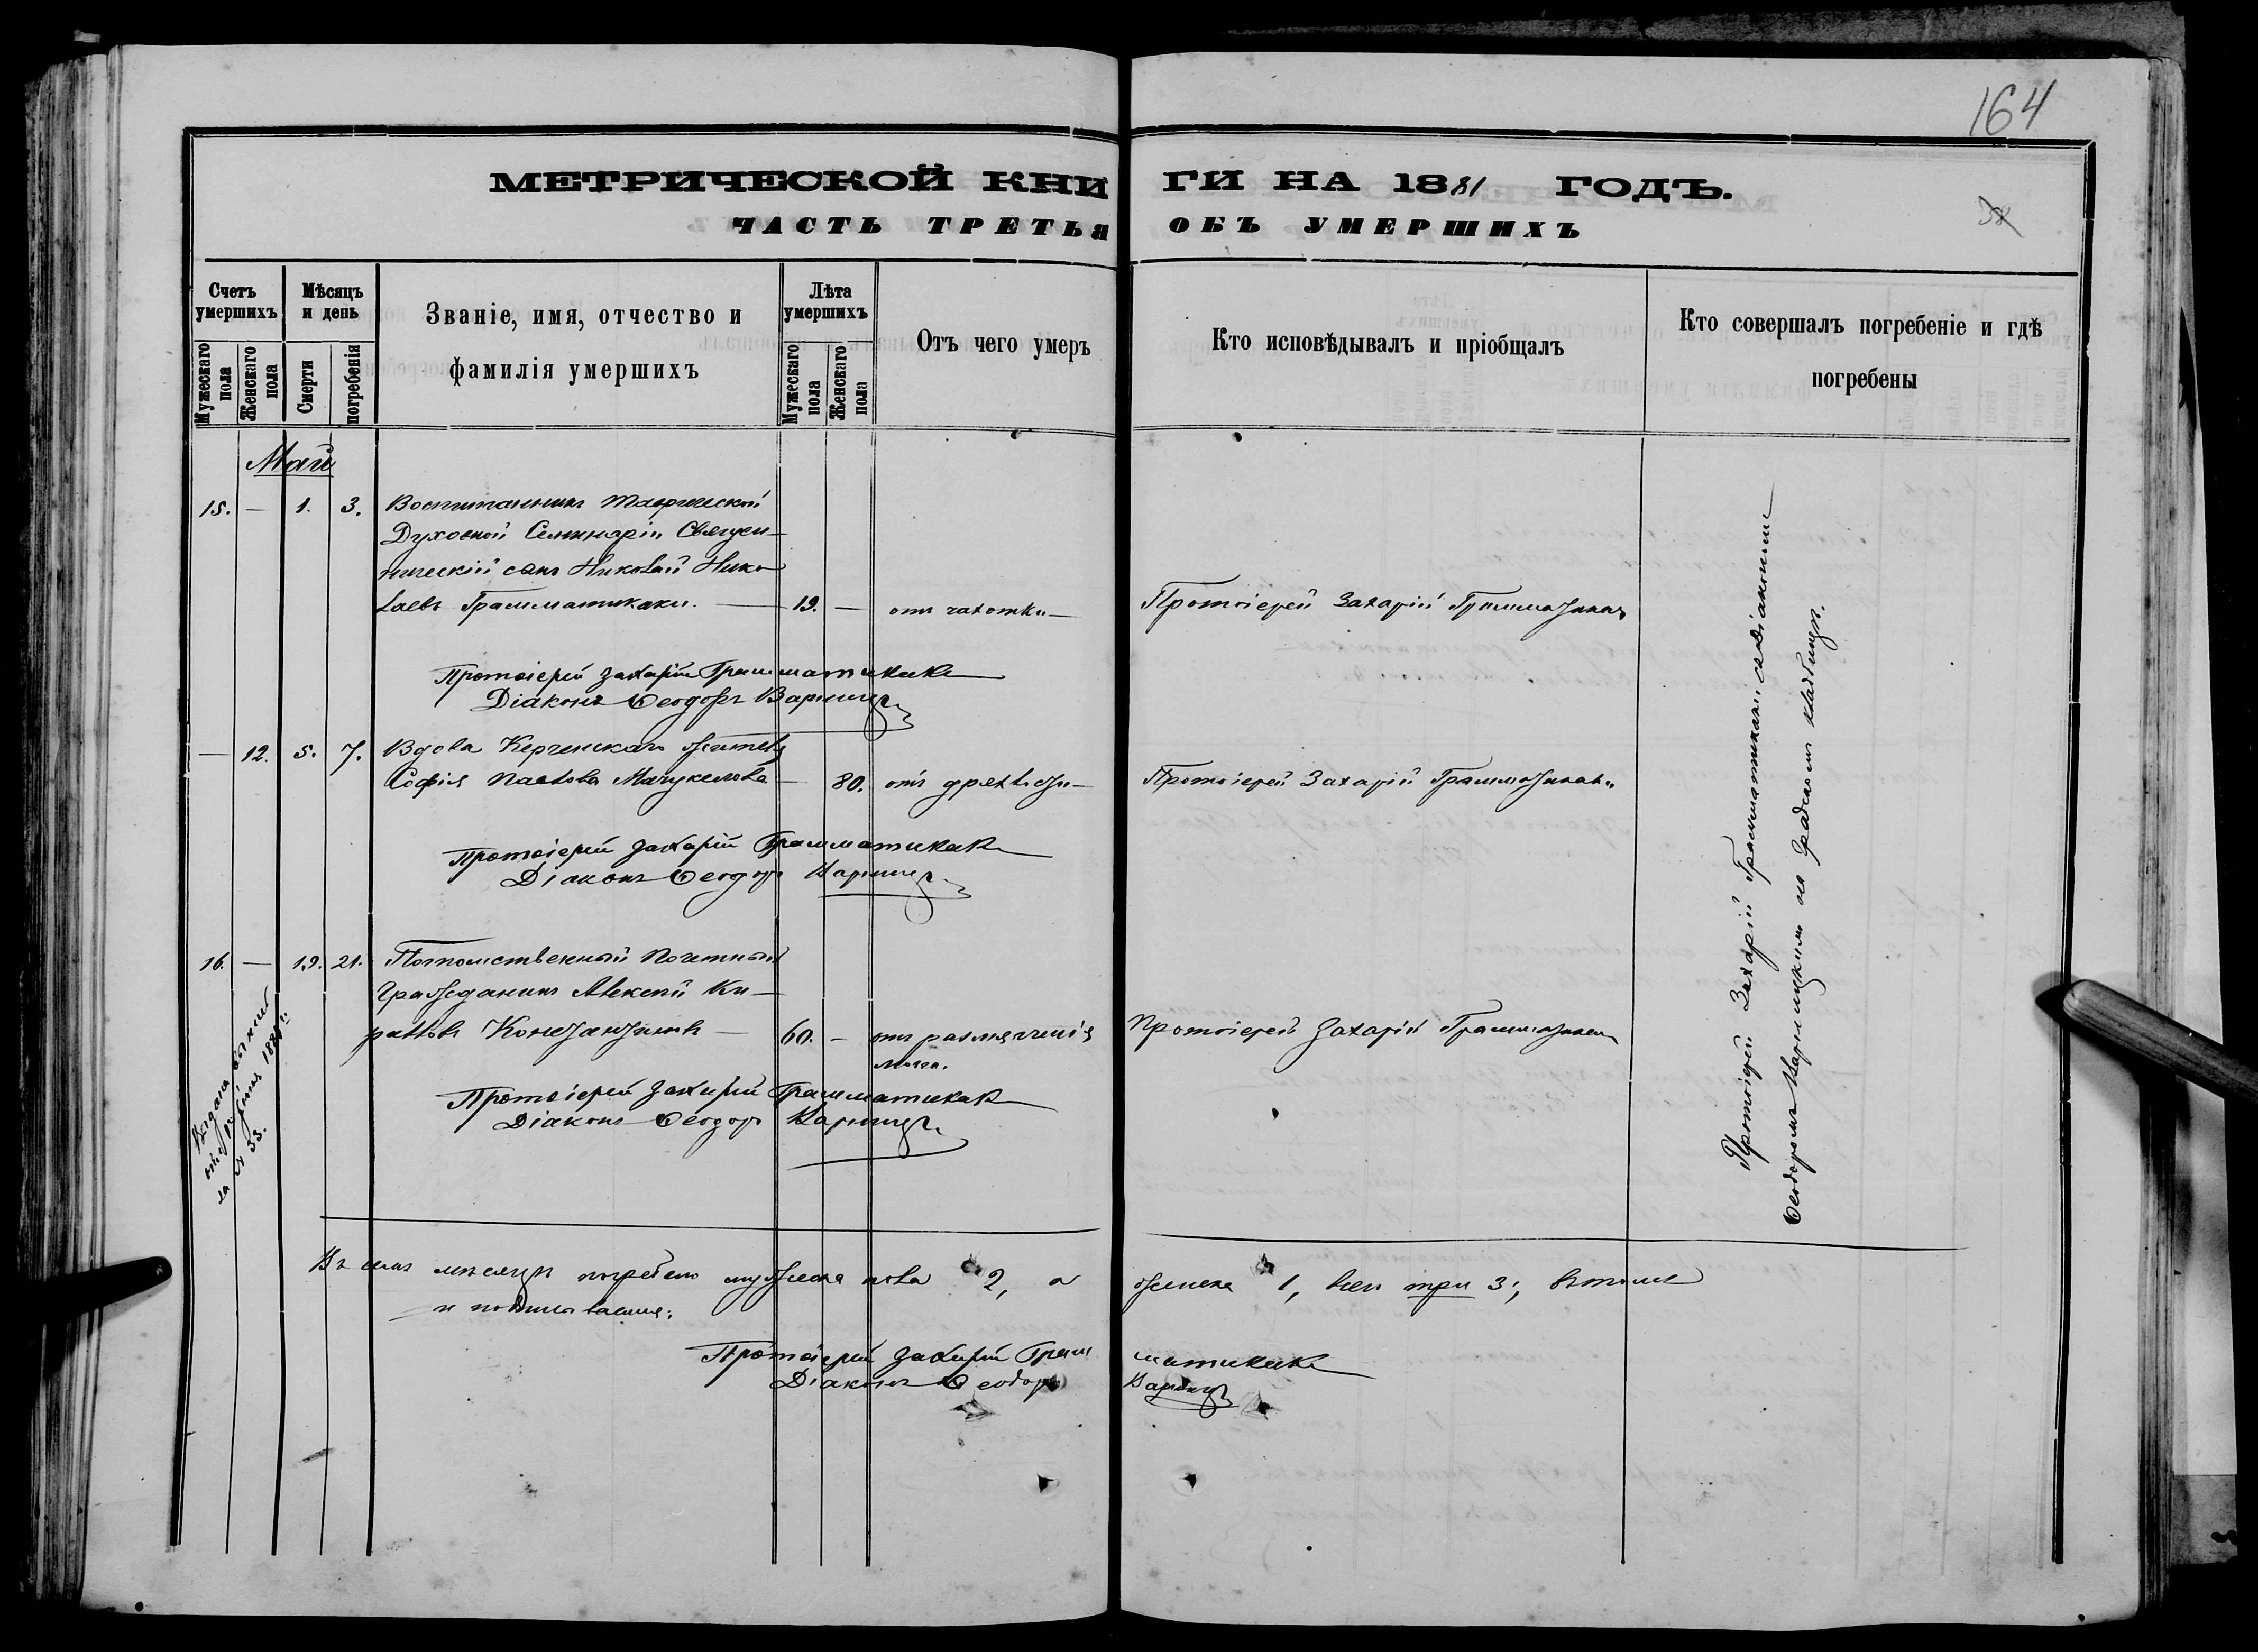 164
МЕТРИЧЕСКОЙ КНИГИ НА 1881 ГОДЪ.
ЧАСТЬ ТРЕТЬЯ ОБЪ УМЕРШИХЪ
38
Счетъ умершихъ
Мужескаго пола
Женскаго пола
Мѣсяцъ и день
Смерти
погребенія
Званіе, имя, отчество и
фамилія умершихъ
Лѣта умершихъ
Мужескаго пола
Женскаго пола
Отъ чего умеръ
Кто исповѣдывалъ и пріобщалъ
Кто совершалъ погребеніе и гдѣ
погребены
Май
15. — 1. 3. Воспитанникъ Таврической
Духовной Семинаріи Священ-
ническій сынъ Николай Нико
лаевъ Грамматикаки. — 19. — отъ чахотки — Протоіерей Захарій Грамматикаки
Протоіерей Захарій Грамматикаки
Діаконъ Ѳеодоръ
— 12. 5. 7. Вдова Керченскаго жителя
Софія Павлова — 80. отъ дряхлости — Протоіерей Захарій Грамматикаки
Протоіерей Захарій Грамматикаки
Діаконъ Ѳеодоръ
16. — 19. 21. Потомственный Почетный
Гражданинъ Алексей Ки-
рановъ Константиновъ — 60. — отъ размягченія
мозга. Протоіерей Захарій Грамматикаки
Протоіерей Захарій Грамматикаки
Діаконъ Ѳеодоръ
Выдана
за № 33.
Протоіерей Захарій Грамматикаки съ діакономъ
Ѳеодоромъ на градскомъ кладбищѣ.
Въ семъ мѣсяцѣ погребено мужеска пола 2, а женска 1, всего три 3; въ томъ
и подписываемся:
Протоіерей Захарій Грамматикаки
Діаконъ Ѳеодоръ